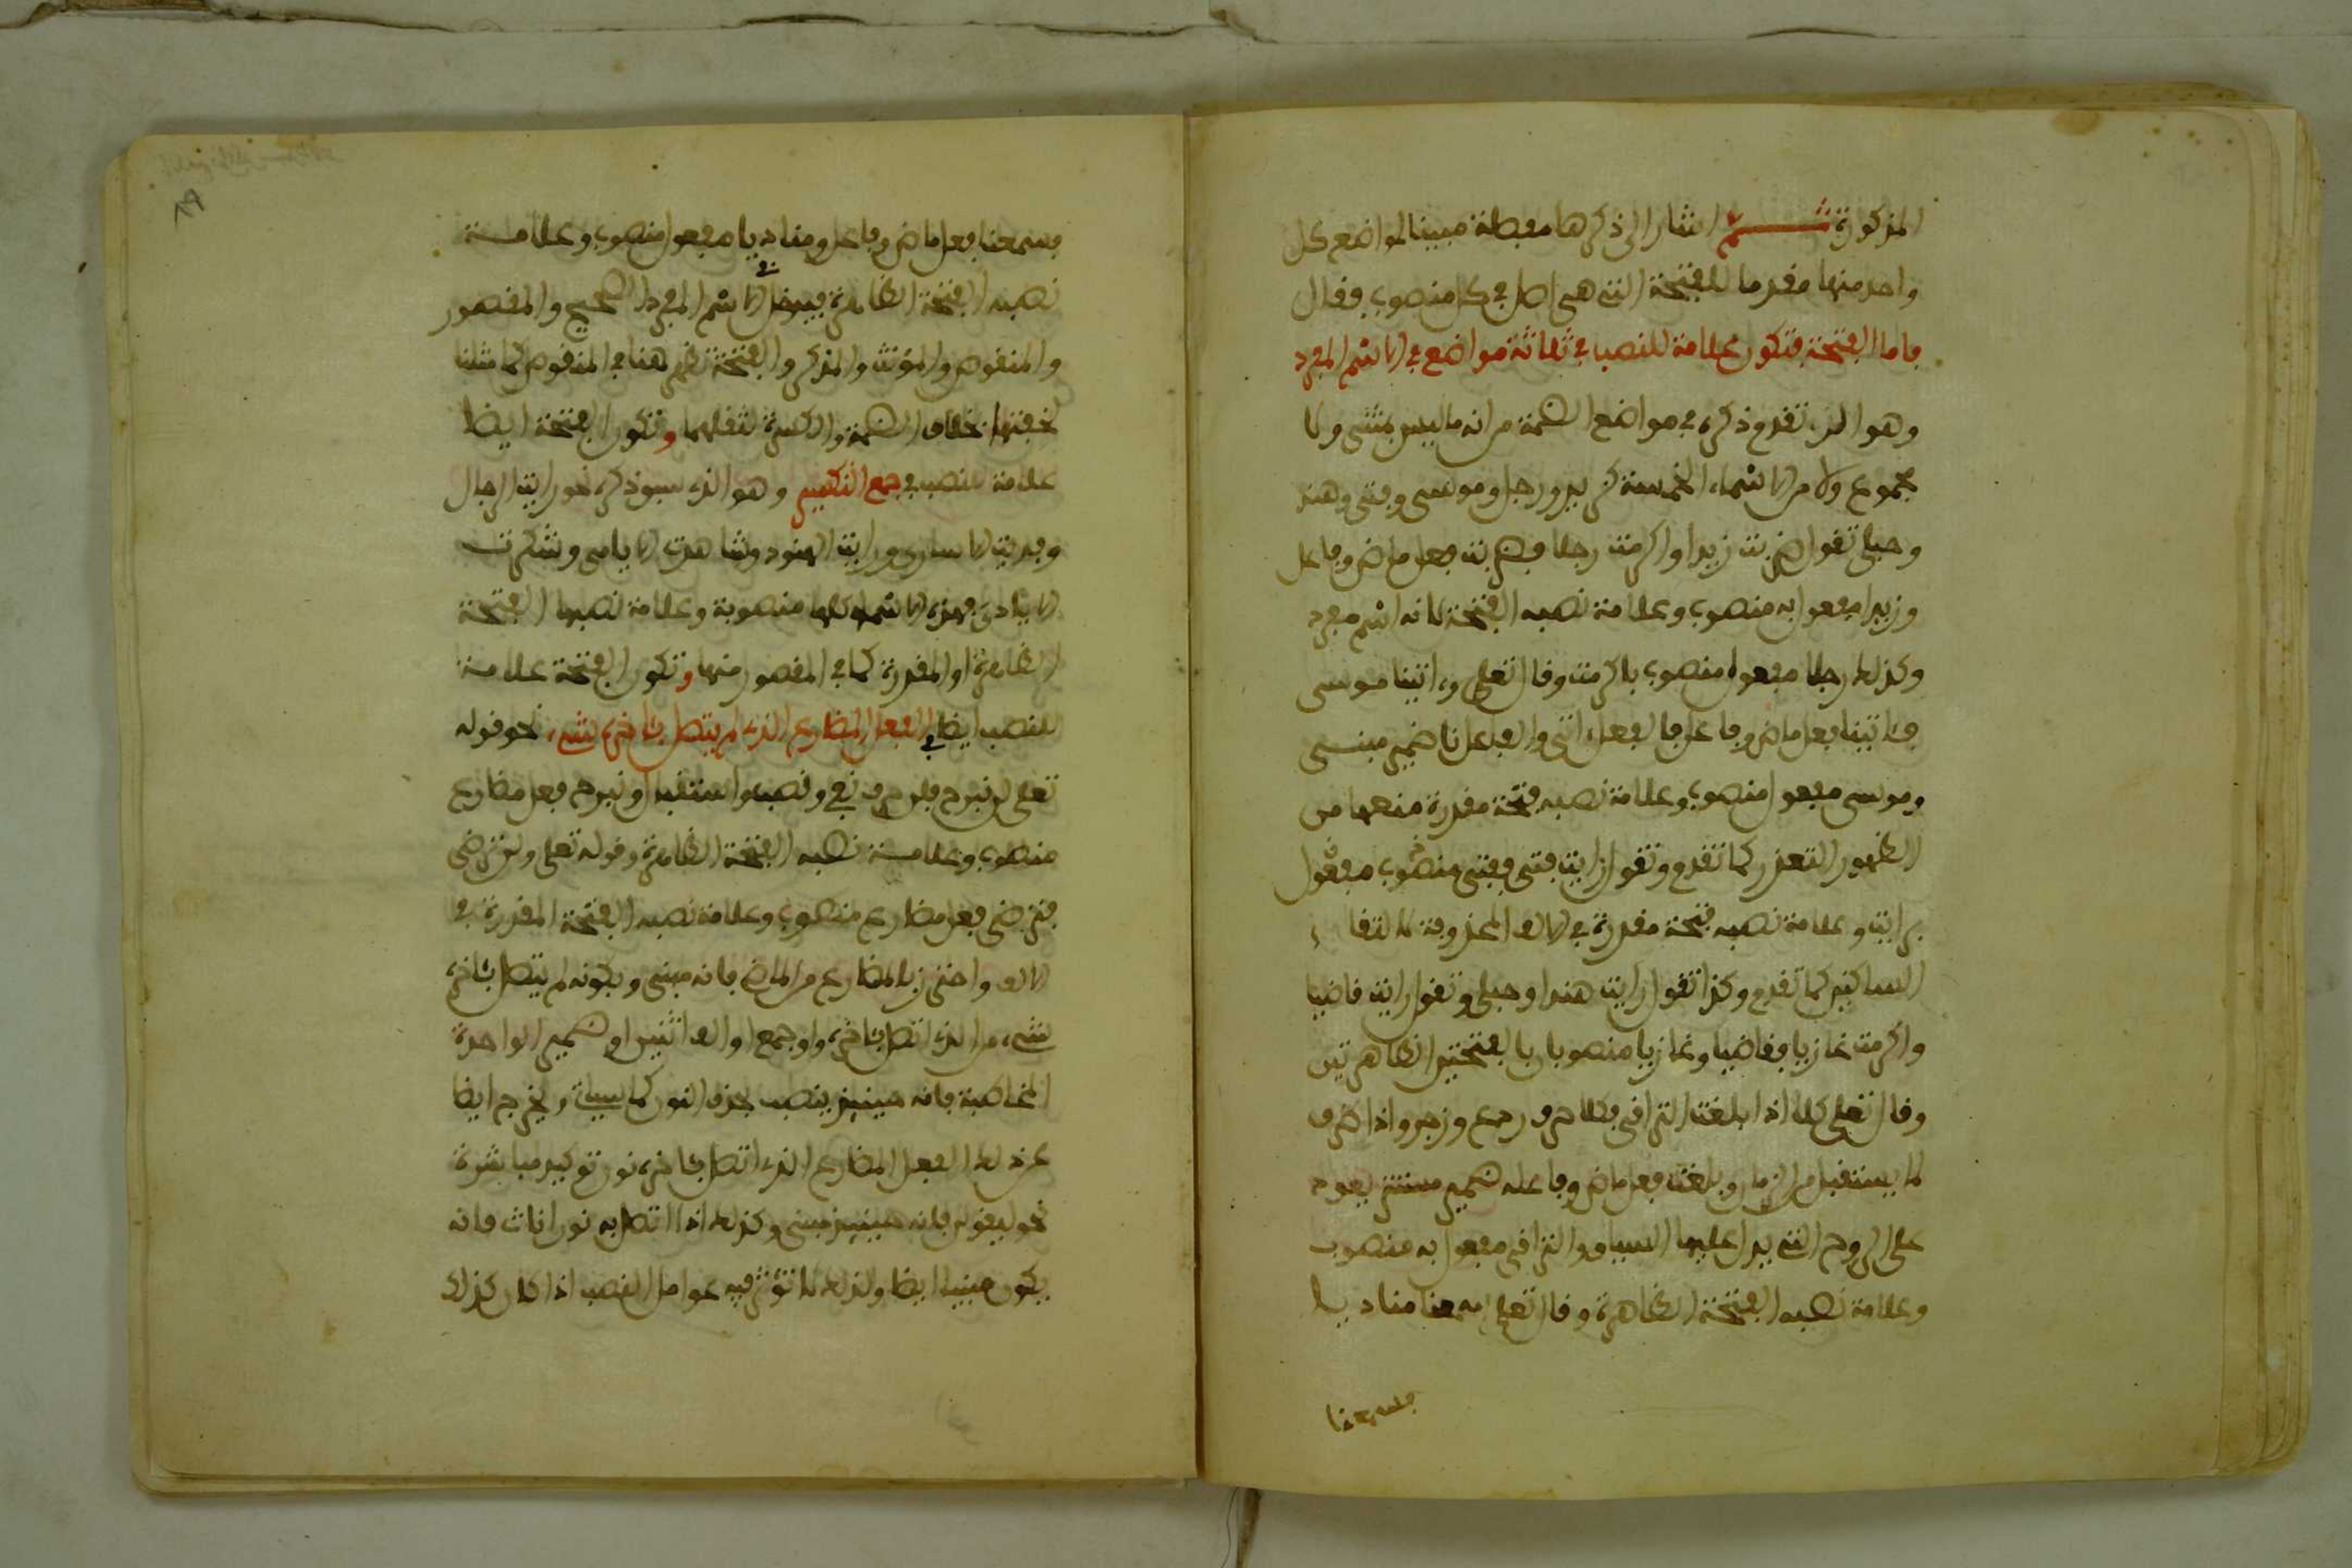 المذكورة ثم اشار الى ذكرها مفصلة مبينا لمواضع كل
واحد منها مقدما للفتحة التي هي اصل في كل منصوب فقال
فاما الفتحة فتكون علامة للنصب في ثلاثة مواضع في الاسم المفرد
وهو الذي تقدم ذكره في مواضع الضمة من انه ما ليس بمثنى ولا
مجموع ولا من الاسماء الخمسة كزيد ورجل وموسى وفتى وهند
وحبلى تقول ضربت زيدا واكرمت رجلا فضربت فعل ماض وفاعل
وزيدا مفعول به منصوب وعلامة نصبه الفتحة لانه اسم مفرد
وكذلك رجلا مفعول منصوب باكرمت وقال تعلى وءاتينا موسى
فئاتينا فعل ماض وفاعل فالفعل ءاتى والفاعل نا ضمير مبني
وموسى مفعول منصوب وعلامة نصبه فتحة مقدرة منعها من
الظهور التعذر كما تقدم وتقول رايت فتى ففتى منصوب مفعول
برايت وعلامة نصبه فتحة مقدرة في الالف المحذوفة لالتقاء
الساكنين كما تقدم وكذا تقول رايت هندا وحبلى وتقول رايت قاضيا
واكرمت غازيا فقاضيا وغازيا منصوبان بالفتحتين الظاهرتين
وقال تعلى كلا اذا بلغت التراقي فكلا حرف ردع وزجر واذا ظرف
لما يستقبل من الزمان وبلغت فعل ماض وفاعله ضمير مستتر يعود
على الروح التي يدل عليها السياق والتراقي مفعول به منصوب
وعلامة نصبه الفتحة الظاهرة وقال تعلى سمعنا مناديا
فسمعنا
فسمعنا فعل ماض وفاعل ومناديا مفعول منصوب وعلامة
نصبه الفتحة الظاهرة فيدخل في الاسم المفرد الصحيح والمقصور
والمنقوص والمؤنث والمذكر والفتحة تظهر هنا في المنقوص كما مثلنا
لخفتها بخلاف الضمة والكسرة لثقلهما وتكون الفتحة ايضا
علامة للنصب في جمع التكسير وهو الذي سبق ذكره نحو رايت الرجال
وفديت الاسارى ورايت الهنود وشاهدت الايامى وشكرت
الايادي فهذه الاسماء كلها منصوبة وعلامة نصبها الفتحة
الظاهرة او المقدرة كما في المقصور منها وتكون الفتحة علامة
للنصب ايضا في الفعل المضارع الذي لم يتصل بئاخره شيء نحو قوله
تعلى لن نبرح فلن حرف نفي ونصب واستقبال ونبرح فعل مضارع
منصوب وعلامة نصبه الفتحة الظاهرة وقوله تعلى ولن ترضى
فترضى فعل مضارع منصوب وعلامة نصبه الفتحة المقدرة في
الالف واحترز بالمضارع من الماضي فانه مبني وبكونه لم يتصل بئاخره
شيء من الذي اتصل بئاخره واو جمع او الف اثنين او ضمير الواحدة
المخاطبة فانه حينئذ ينصب بحذف النون كما سياتي ويخرج ايضا
عن ذلك الفعل المضارع الذي اتصل بئاخره نون توكيد مباشرة
نحو ليقولن فانه حينئذ مبني وكذلك اذا اتصل به نون اناث فانه
يكون مبنيا ايضا ولذلك لا تؤثر فيه عوامل النصب اذا كان كذلك